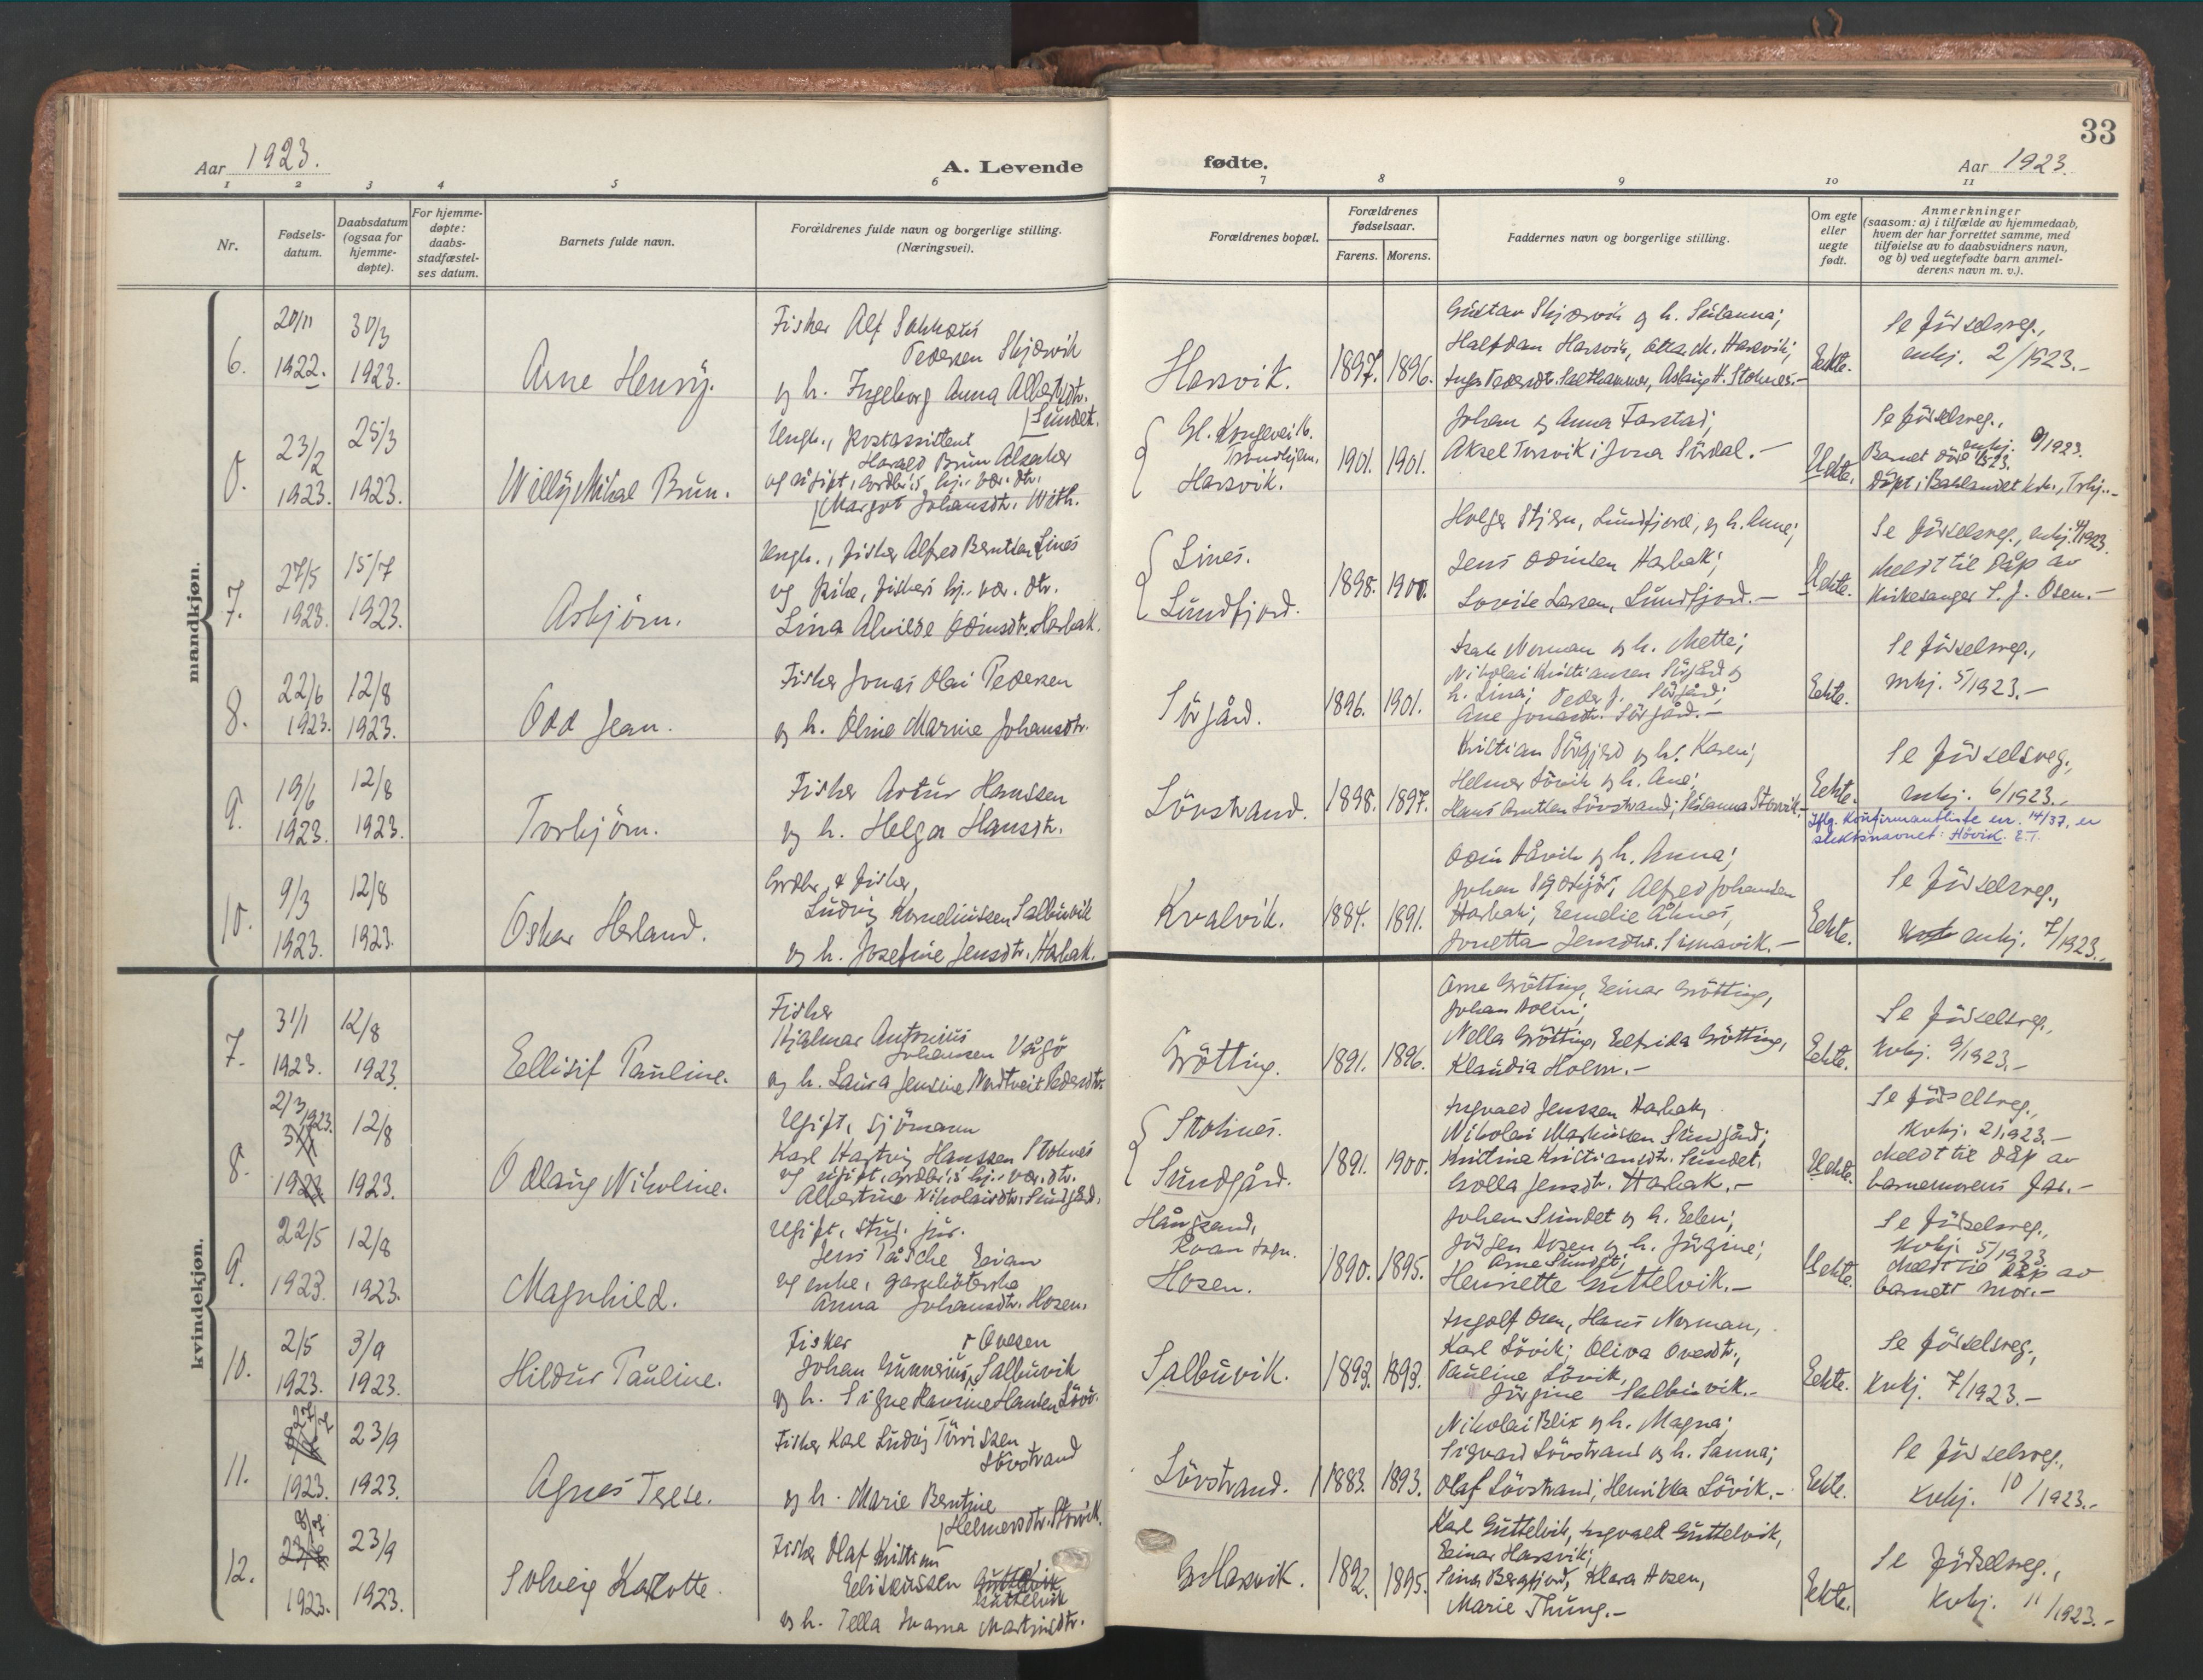 33
Aar 1923.
A. Levende
fødte.
Aar 1923.
1 2 3 4 5 6 7 8 9 10 11
Nr.
Fødsels-
datum.
Daabsdatum
(ogsaa for
hjemme-
døpte).
For hjemme-
døpte:
daabs-
stadfæstel-
ses datum.
Barnets fulde navn.
Forældrenes fulde navn og borgerlige stilling.
(Næringsvei).
Forældrenes bopæl.
Forældrenes
fødselsaar.
Farens. Morens.
Faddernes navn og borgerlige stilling.
Om egte
eller
uegte
født.
Anmerkninger
(saasom: a) i tilfælde av hjemmedaab,
hvem der har forrettet samme, med
tilføielse av to daabsvidners navn,
og b) ved uegtefødte barn anmel-
derens navn m. v.).
mandkjøn.
6.
20/11
1922.
30/3
1923.
Arne Henry.
Fisker Alf
Pedersen Skjærvik
og h. Ingeborg Anna Albertsdtr.
Sundet.
Harsvik.
1897. 1896.
Gustav Skjærvik og h. Susanna;
Halfdan Harsvik, Harsvik;
Ekte.
Se födselsreg.,
mkj. 2/1923.-
23/2
1923.
25/3
1923.
Willy Mikal Brun.
Ungk., postassistent
Harald Brun
og ugift, grdbr.s hj. vær. dtr.
Margot Johansdtr. With.
Gl. Kongevei 16.
Trondhjem.
Harsvik.
1901. 1901.
Johan og Anna Farstad;
Aksel Torsvik; Jona Sördal.-
Uekte.
Se födselsreg.,
Döpt i Baklandet krk., Trhj.-
7.
27/5
1923.
15/7
1923.
Asbjörn.
Ungk., fisker Alfred Berntsen Lines
og pike, fiskers hj. vær. dtr.
Lina Alvilde Odinsdtr. Harbak.
Lines.
Sundfjord.
1898. 1900.
Holger Stjern, Sundfjord, og h. Anne;
Jens Odinsen Harbak;
Lovise Larsen, Sundfjord.-
Uekte.
Se födselsreg., mkj. 4/1923.
Meldt til dåp av
Kirkesanger S. J. Osen.-
8.
22/6
1923.
12/8
1923.
Odd Jean.
Fisker Jonas Olai Pedersen
og h. Oline Marnie Johansdtr.
Sörgård.
1896. 1901.
Isak Norman og h. Mette;
Nikolai Kristiansen Sörgård og
h. Lina; Peder J. Sörgård;
Ane Jonasdtr. Sörgård.-
Ekte.
Se födselsreg.,
mkj. 5/1923.-
9.
19/6
1923.
12/8
1923.
Torbjörn.
Fisker Artur Hanssen
og h. Helga Hansdtr.
Lövstrand.
1898. 1897.
Kristian Sörgjerd og h. Karen;
Helmer Lövik og h. Ane;
Hans Berntsen Lövstrand; Susanna Storvik.-
Ekte.
Se födselsreg.,
mkj. 6/1923.-
Iflg. Konfirmantliste nr. 14/37, er
slektsnavnet: Hövik. E.T.
10.
9/3
1923.
12/8
1923.
Oskar Herland.
Grdbr. & fisker,
Ludvig Korneliussen Salbuvik
og h. Josefine Jensdtr. Harbak.
Kvalvik.
1884. 1891.
Odin Håvik og h. Anna;
Alfred Johansen
Harbak; Emelie Åknes,
Jonetta Jensdtr. Simavik.-
Ekte.
Se födselsreg.,
mkj. 7/1923.-
kvindekjøn.
7.
31/1
1923.
12/8
1923.
Ellisif Pauline.
Fisker
Hjalmar Antonius
Johansen Vågö
og h. Laura Jensine Nordtveit Pedersdtr.
Grötting.
1891. 1896.
Arne Grötting, Einar Grötting,
Johan Holm;
Nella Grötting, Elfrida Grötting,
Klaudia Holm.-
Ekte.
Se födselsreg.,
Kvkj. 9/1923.-
8.
2/3
1923.
12/8
1923.
Odlaug Nikoline.
Ugift, sjömann
Karl Hartvig Hanssen Stoknes
og ugift, grdbr.s hj. vær. dtr.
Albertine Nikolaisdtr. Sundgård.
Stoknes.
Sundgård.
1891. 1900.
Ingvald Jenssen Harbak,
Nikolai Markussen Sundgård;
Kristina Kristiansdtr. Sundet,
Golla Jensdtr. Harbak.-
Uekte.
Se födselsreg.,
Kvkj. 2/1923.-
Meldt til dåp av
barnemorens far.-
9.
22/5
1923.
12/8
1923.
Magnhild.
Ugift, stud. jur.
Jens Påsche
og enke, garnböterske
Anna Johansdtr. Hosen.
Roan sogn.
Hosen.
1890. 1895.
Johan Sundet og h. Elen;
Jörgen Hosen og h. Jörgine;
Arne Sundet;
Henriette Guttelvik.-
Uekte.
Se födselsreg.,
Kvkj. 5/1923
Meldt til dåp av
barnets mor.-
10.
2/5
1923.
3/9
1923.
Hildur Pauline.
Fisker
Ovesen
Johan Gunnerius Salbuvik
og h. Signe Hansine Hansen
Salbuvik.
1893. 1893.
Ingolf Osen, Hans Norman,
Karl Lövik; Oliva Ovesdtr.,
Pauline Lövik,
Jörgine Salbuvik.-
Ekte.
Se födselsreg.,
Kvkj. 7/1923.-
11.
1923.
23/9
1923.
Agnes Terese.
Fisker Karl Ludvig
Lövstrand
og h. Marie Berntine
Helmersdtr. Storvik.
Lövstrand.
1883. 1893.
Nikolai Blix og h. Magna;
Sigvard Lövstrand og h. Sanna;
Olaf Lövstrand; Henrikka Lövik.-
Ekte.
Se födselsreg.,
Kvkj. 10/1923.-
12.
1923.
23/9
1923.
Solveig Karlotte.
Fisker Olaf Kristian
Eliseussen
Guttelvik
og h. Tella Martinsdtr.
Gr. Harsvik.
1892. 1895.
Karl Guttelvik, Ingvald Guttelvik,
Einar Harsvik;
Sina Bergfjord, Klara Hosen,
Marie Thung.-
Ekte.
Se födselsreg.,
Kvkj. 11/1923.-